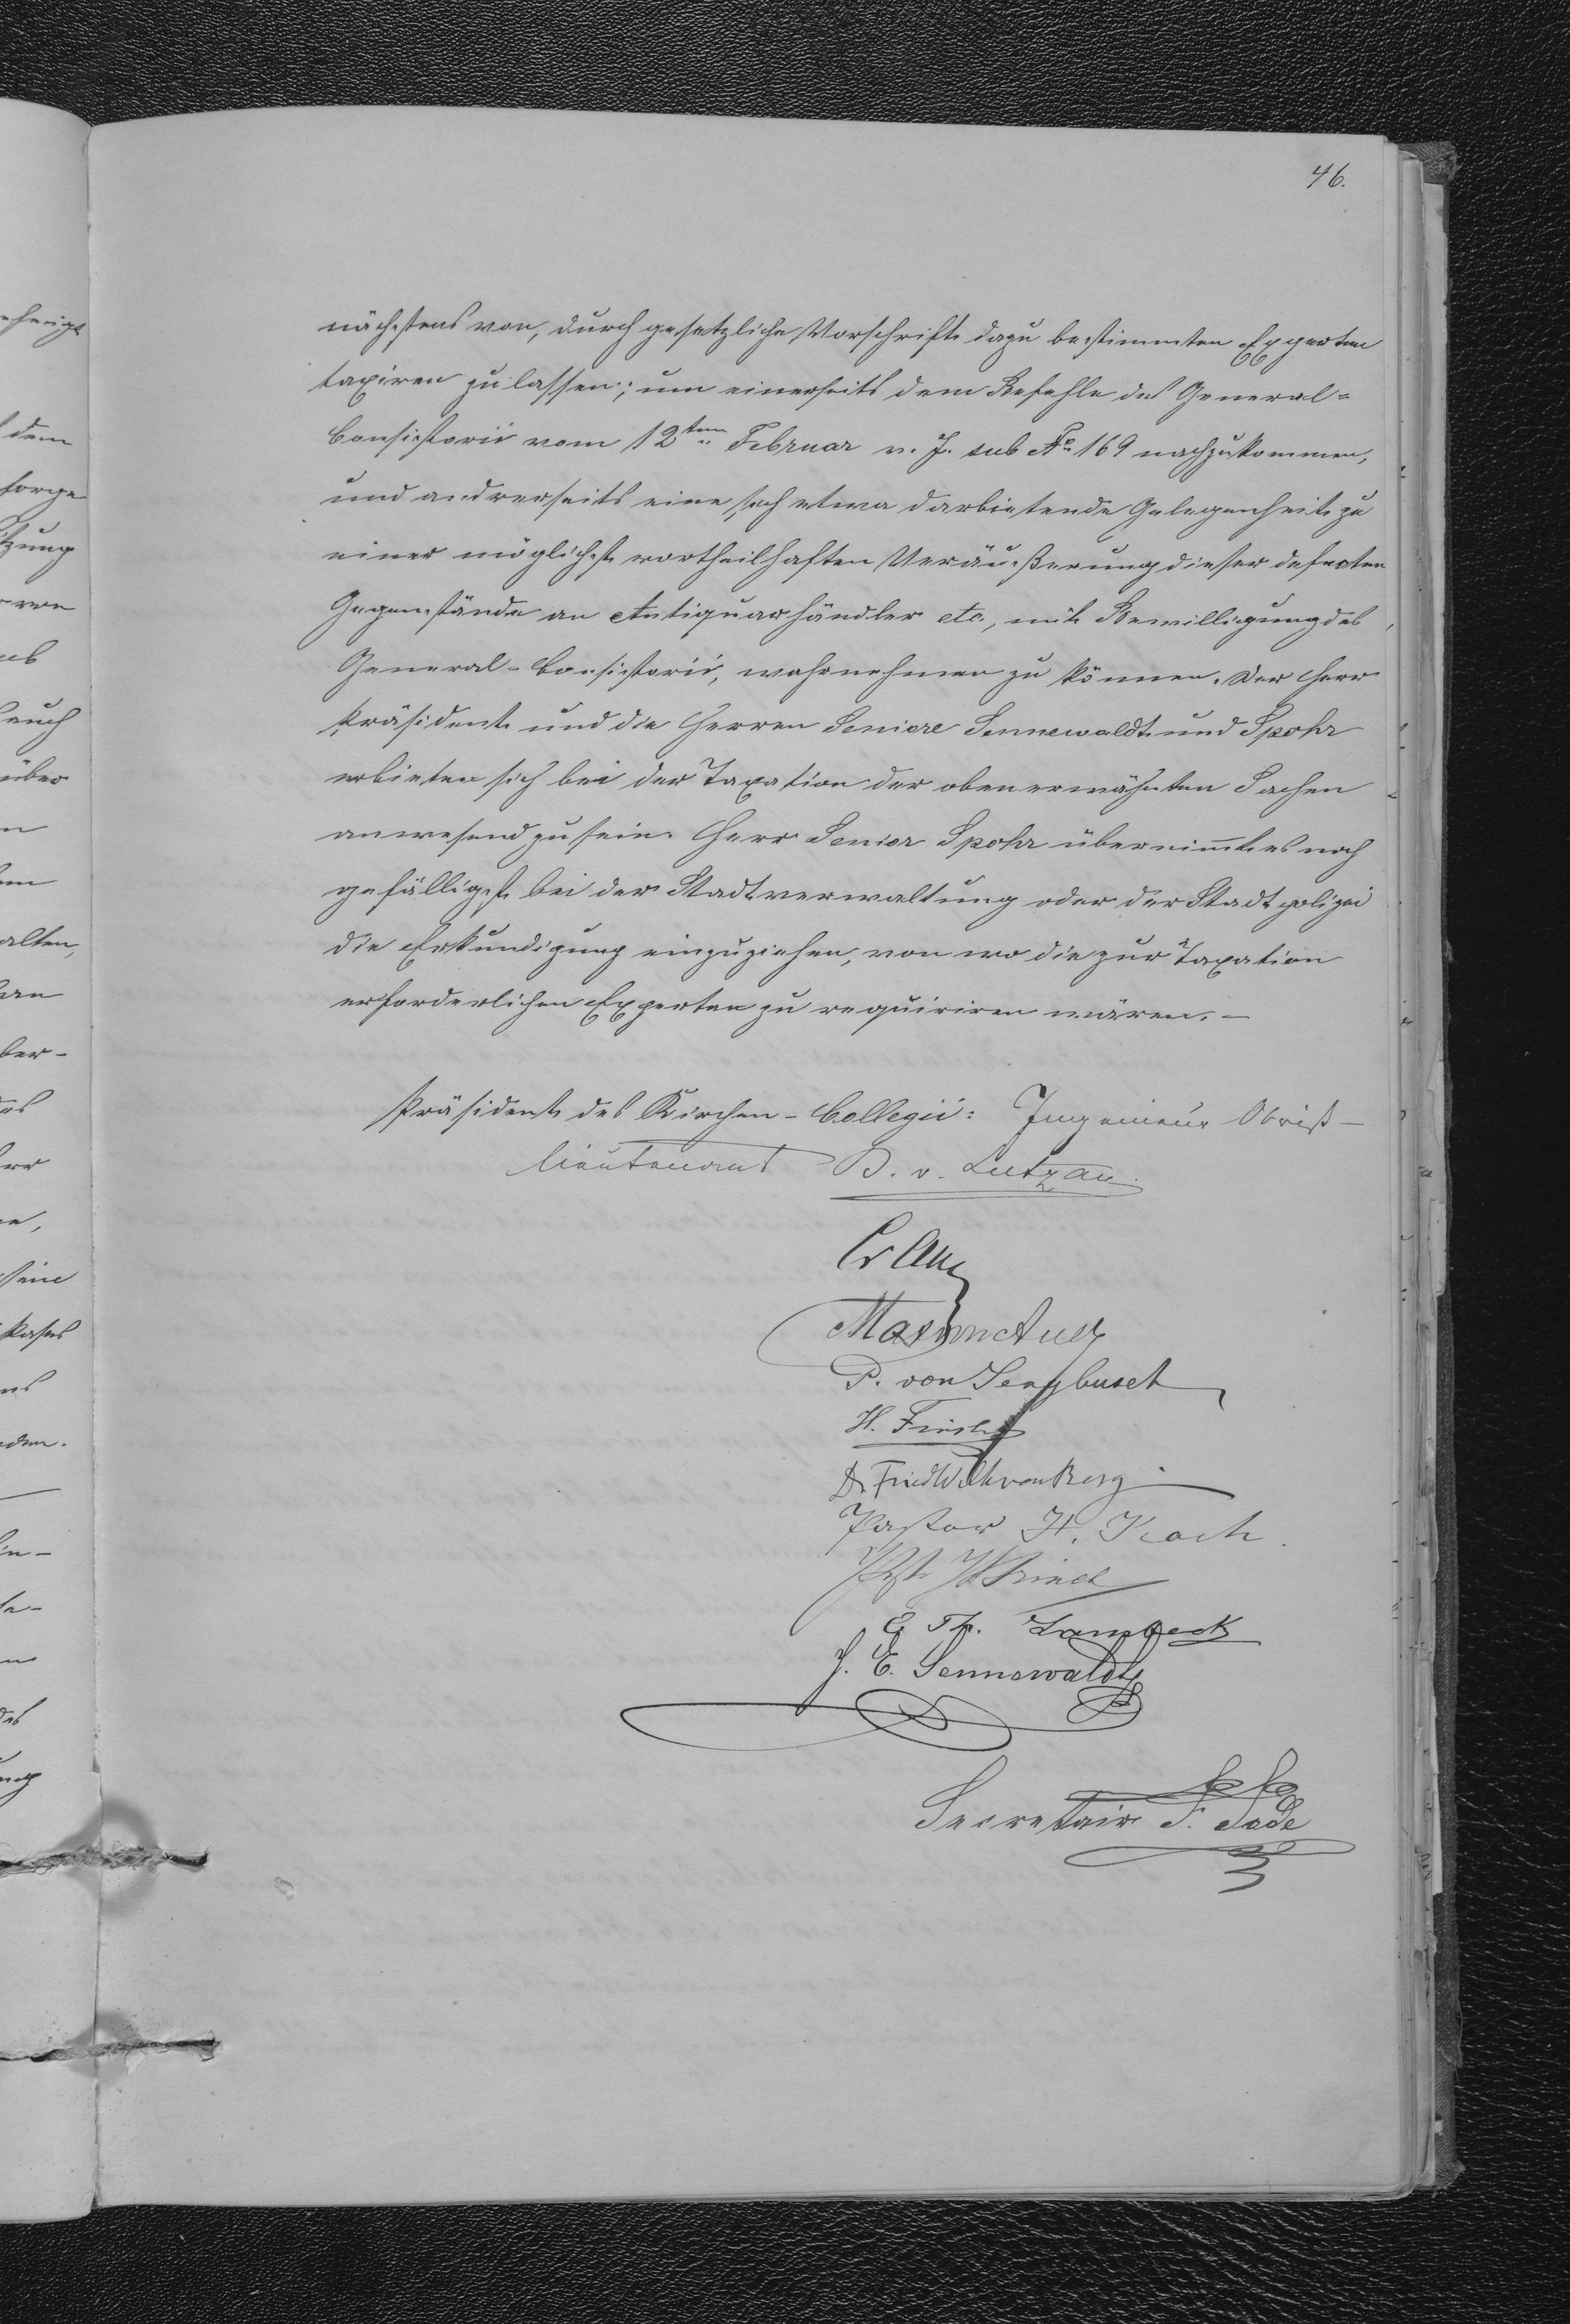 46.
nächstens von, durch gesetzliche Vorschrift dazu bestimmten Experten
taxiren zu lassen; um einerseits dem Befehle des General-
Consistorii vom 12ten Februar v. J. sub No 169 nachzukommen,
und andrerseits eine sich etwa darbietende Gelegenheit zu
einer möglichst vortheilhaften Veräußerung dieser defecten
Gegenstände an Antiquarhändler etc., mit Bewilligung des
General-Consistorii, wahrnehmen zu können. Der Herr
Präsident und die Herren Seniore Sennewaldt und Spohr
erbieten sich bei der Taxation der oben erwähnten Sachen
anwesend zu sein. Herr Senior Spohr übernimmt es noch
gefälligst bei der Stadtverwaltung oder der Stadtpolizei
die Erkundigung einzuziehen, von wo die zur Taxation
erforderlichen Experten zu requiriren wären. –
Präsident des Kirchen-Collegii: Ingenieur Obrist-
lieutenant B. v. Lutzau.
P. von Sengbusch
H.
Dr. Friedr. Wilh. von Berg
Pastor H.
E. Th. Lambeck
J. E. Sennewaldt
Secretair F. Jade
dem
sorge
von
auch
über
alten,
ber-